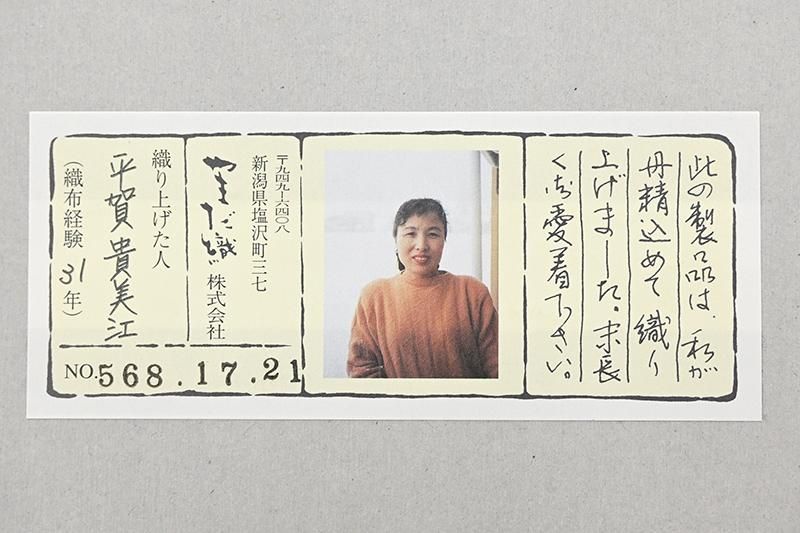 此の製品は、私が
丹精込めて織り
上げました。末長
くご愛着下さい。
〒九四九-六四〇八
新潟県塩沢町三七
やまだ織株式会社
織り上げた人
平賀貴美江
(織布経験31年)
NO.568.17.21